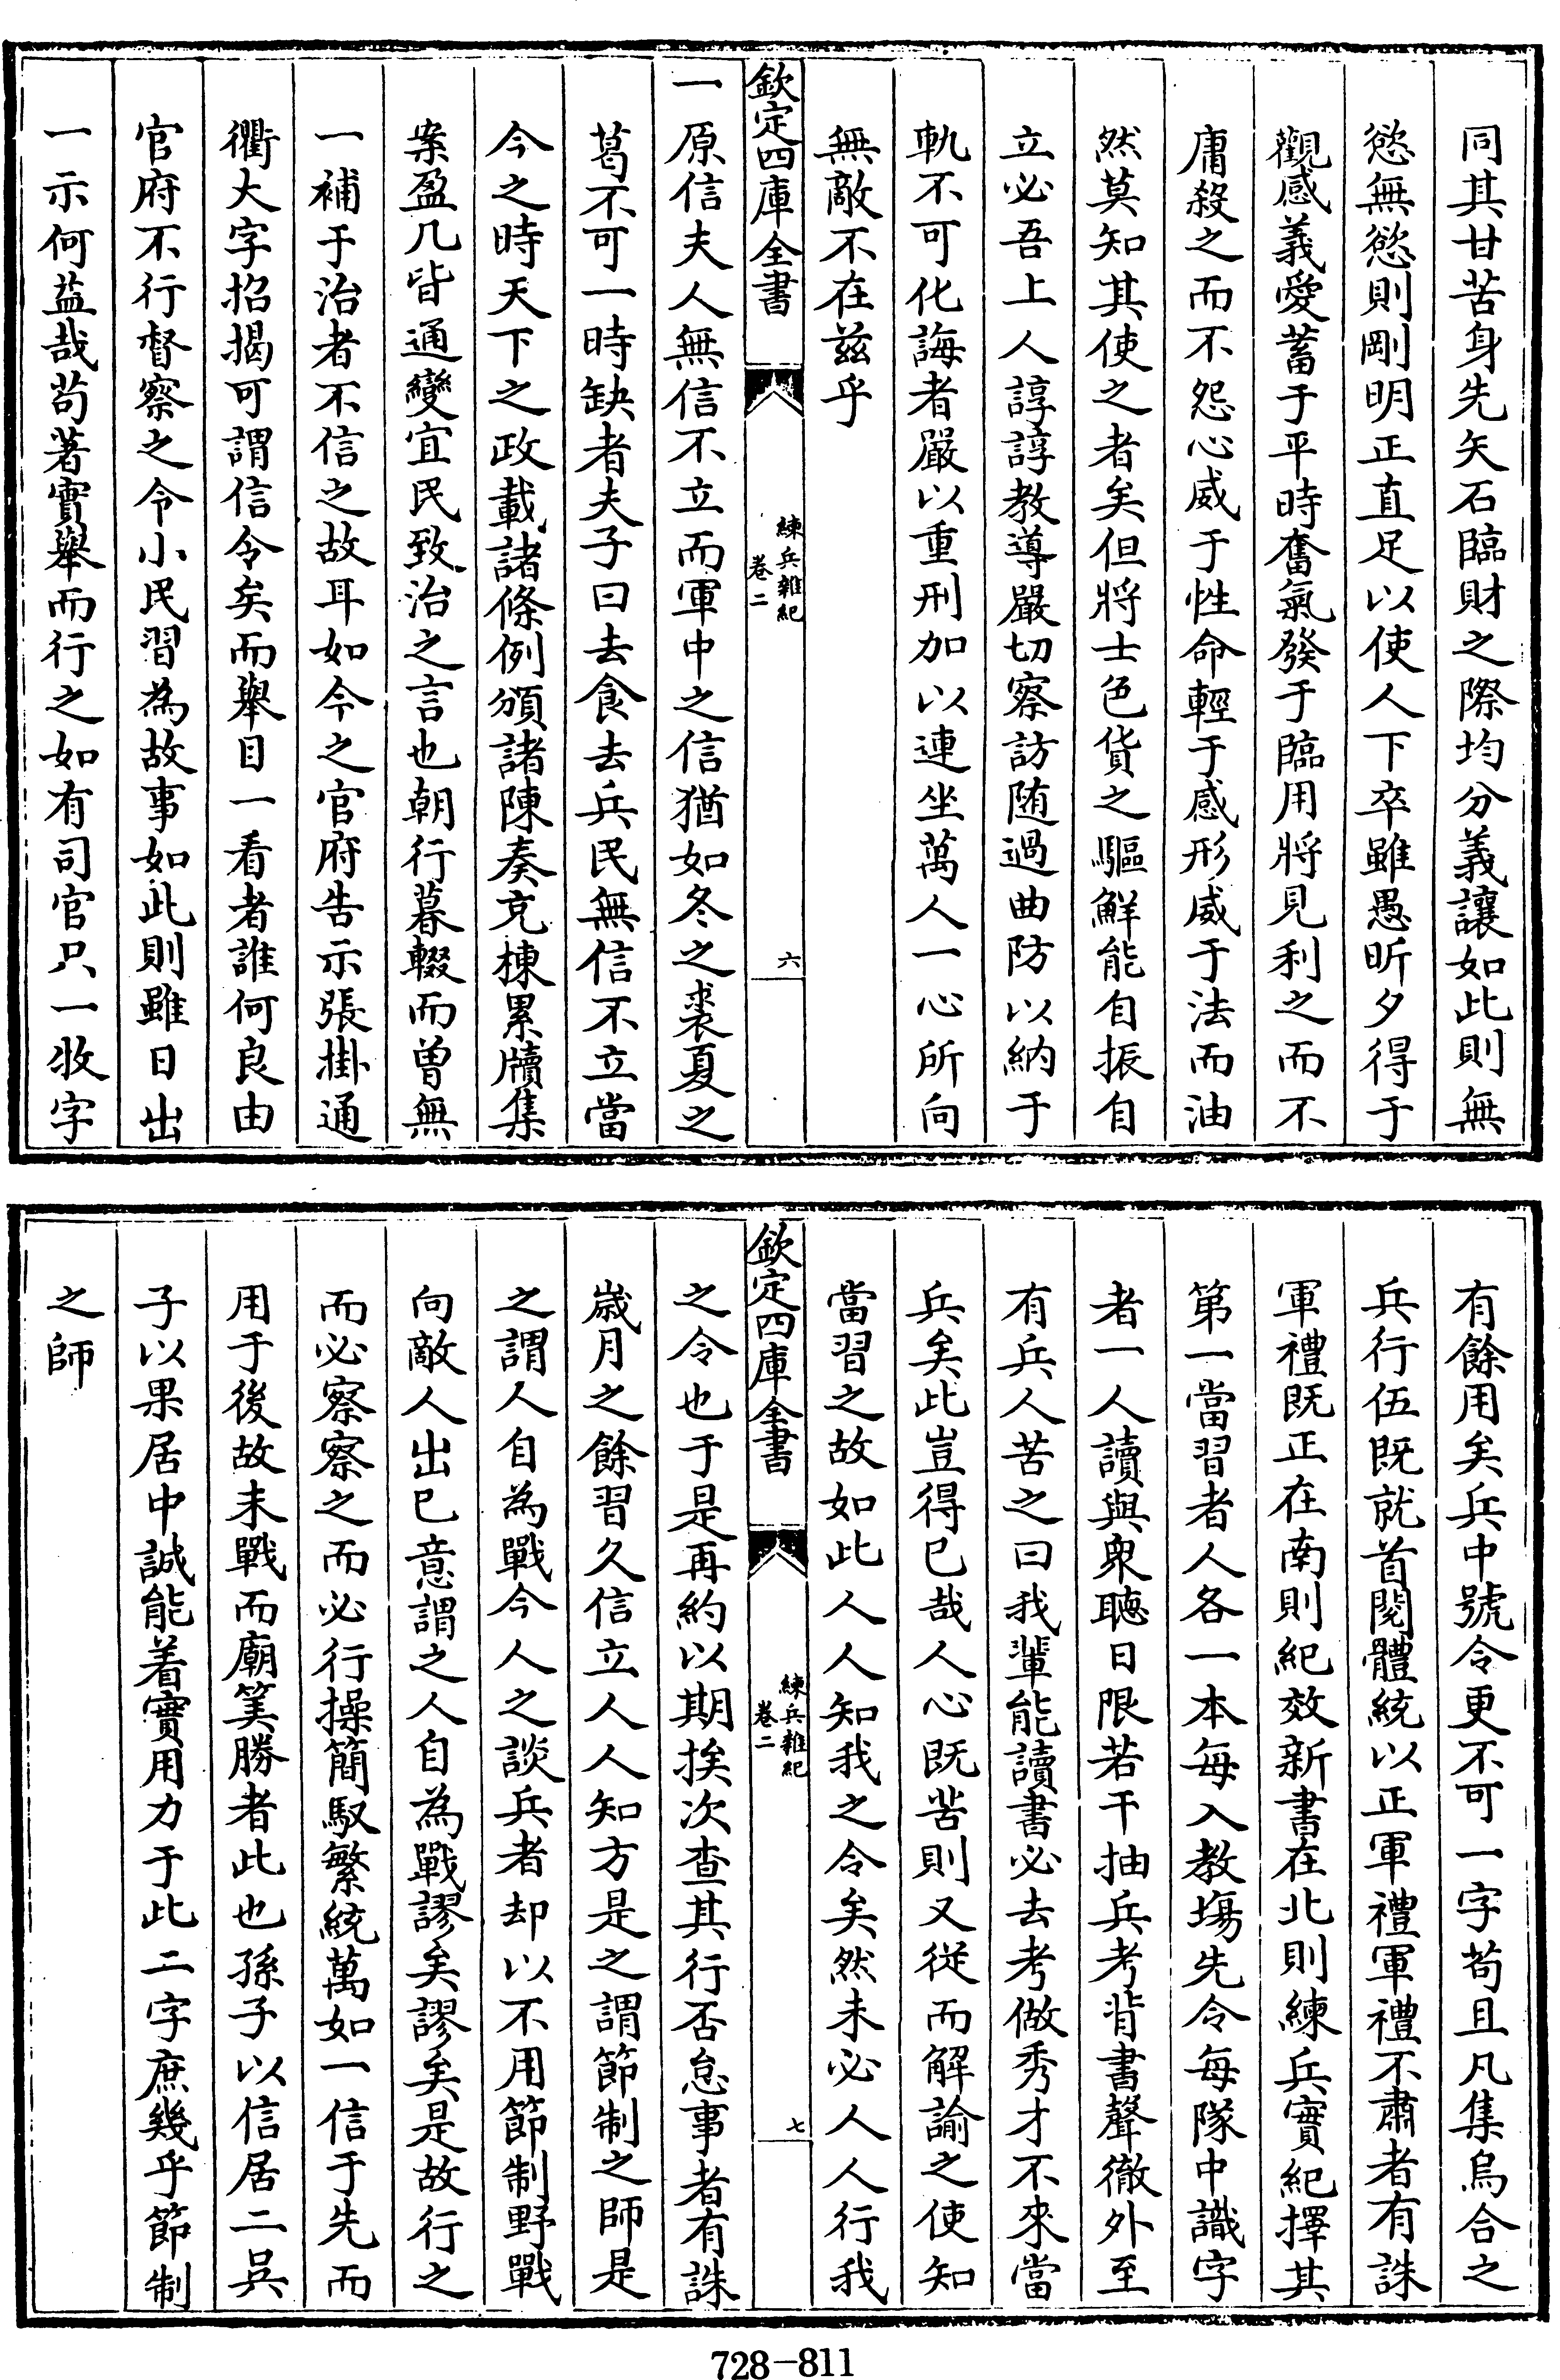 同其甘苦身先矢石臨財之際均分義讓如此則無
慾無慾則剛明正直足以使人下卒雖愚昕夕得于
觀感義愛蓄于平時奮氣發于臨用將見利之而不
庸殺之而不怨心威于性命輕于感形威于法而油
然莫知其使之者矣但將士色貨之驅鮮能自振自
立必吾上人諄諄教導嚴切察訪随過曲防以納于
軌不可化誨者嚴以重刑加以連坐萬人一心所向
無敵不在兹乎
欽定四庫全書
練兵雜紀
卷二
六
一原信夫人無信不立而軍中之信猶如冬之裘夏之
葛不可一時缺者夫子曰去食去兵民無信不立當
今之時天下之政載諸條例頒諸陳奏充棟累牘集
案盈几皆通變宜民致治之言也朝行暮輟而曾無
一補于治者不信之故耳如今之官府告示張掛通
衢大字招揭可謂信令矣而舉目一看者誰何良由
官府不行督察之令小民習為故事如此則雖日出
一示何益哉苟著實舉而行之如有司官只一牧字
有餘用矣兵中號令更不可一字苟且凡集烏合之
兵行伍既就首閱體統以正軍禮軍禮不肅者有誅
軍禮既正在南則紀效新書在北則練兵實紀擇其
第一當習者人各一本每入教場先令每隊中識字
者一人讀與衆聽日限若干抽兵考背書聲徹外至
有兵人苦之曰我輩能讀書必去考做秀才不來當
兵矣此豈得已哉人心既苦則又從而解諭之使知
當習之故如此人人知我之令矣然未必人人行我
欽定四庫全書
練兵雜紀
卷二
七
之令也于是再約以期挨次查其行否怠事者有誅
歲月之餘習久信立人人知方是之謂節制之師是
之謂人自為戰今人之談兵者却以不用節制野戰
向敵人出已意謂之人自為戰謬矣謬矣是故行之
而必察察之而必行操簡馭繁統萬如一信于先而
用于後故未戰而廟筭勝者此也孫子以信居二吳
子以果居中誠能着實用力于此二字庶幾乎節制
之師
728-811